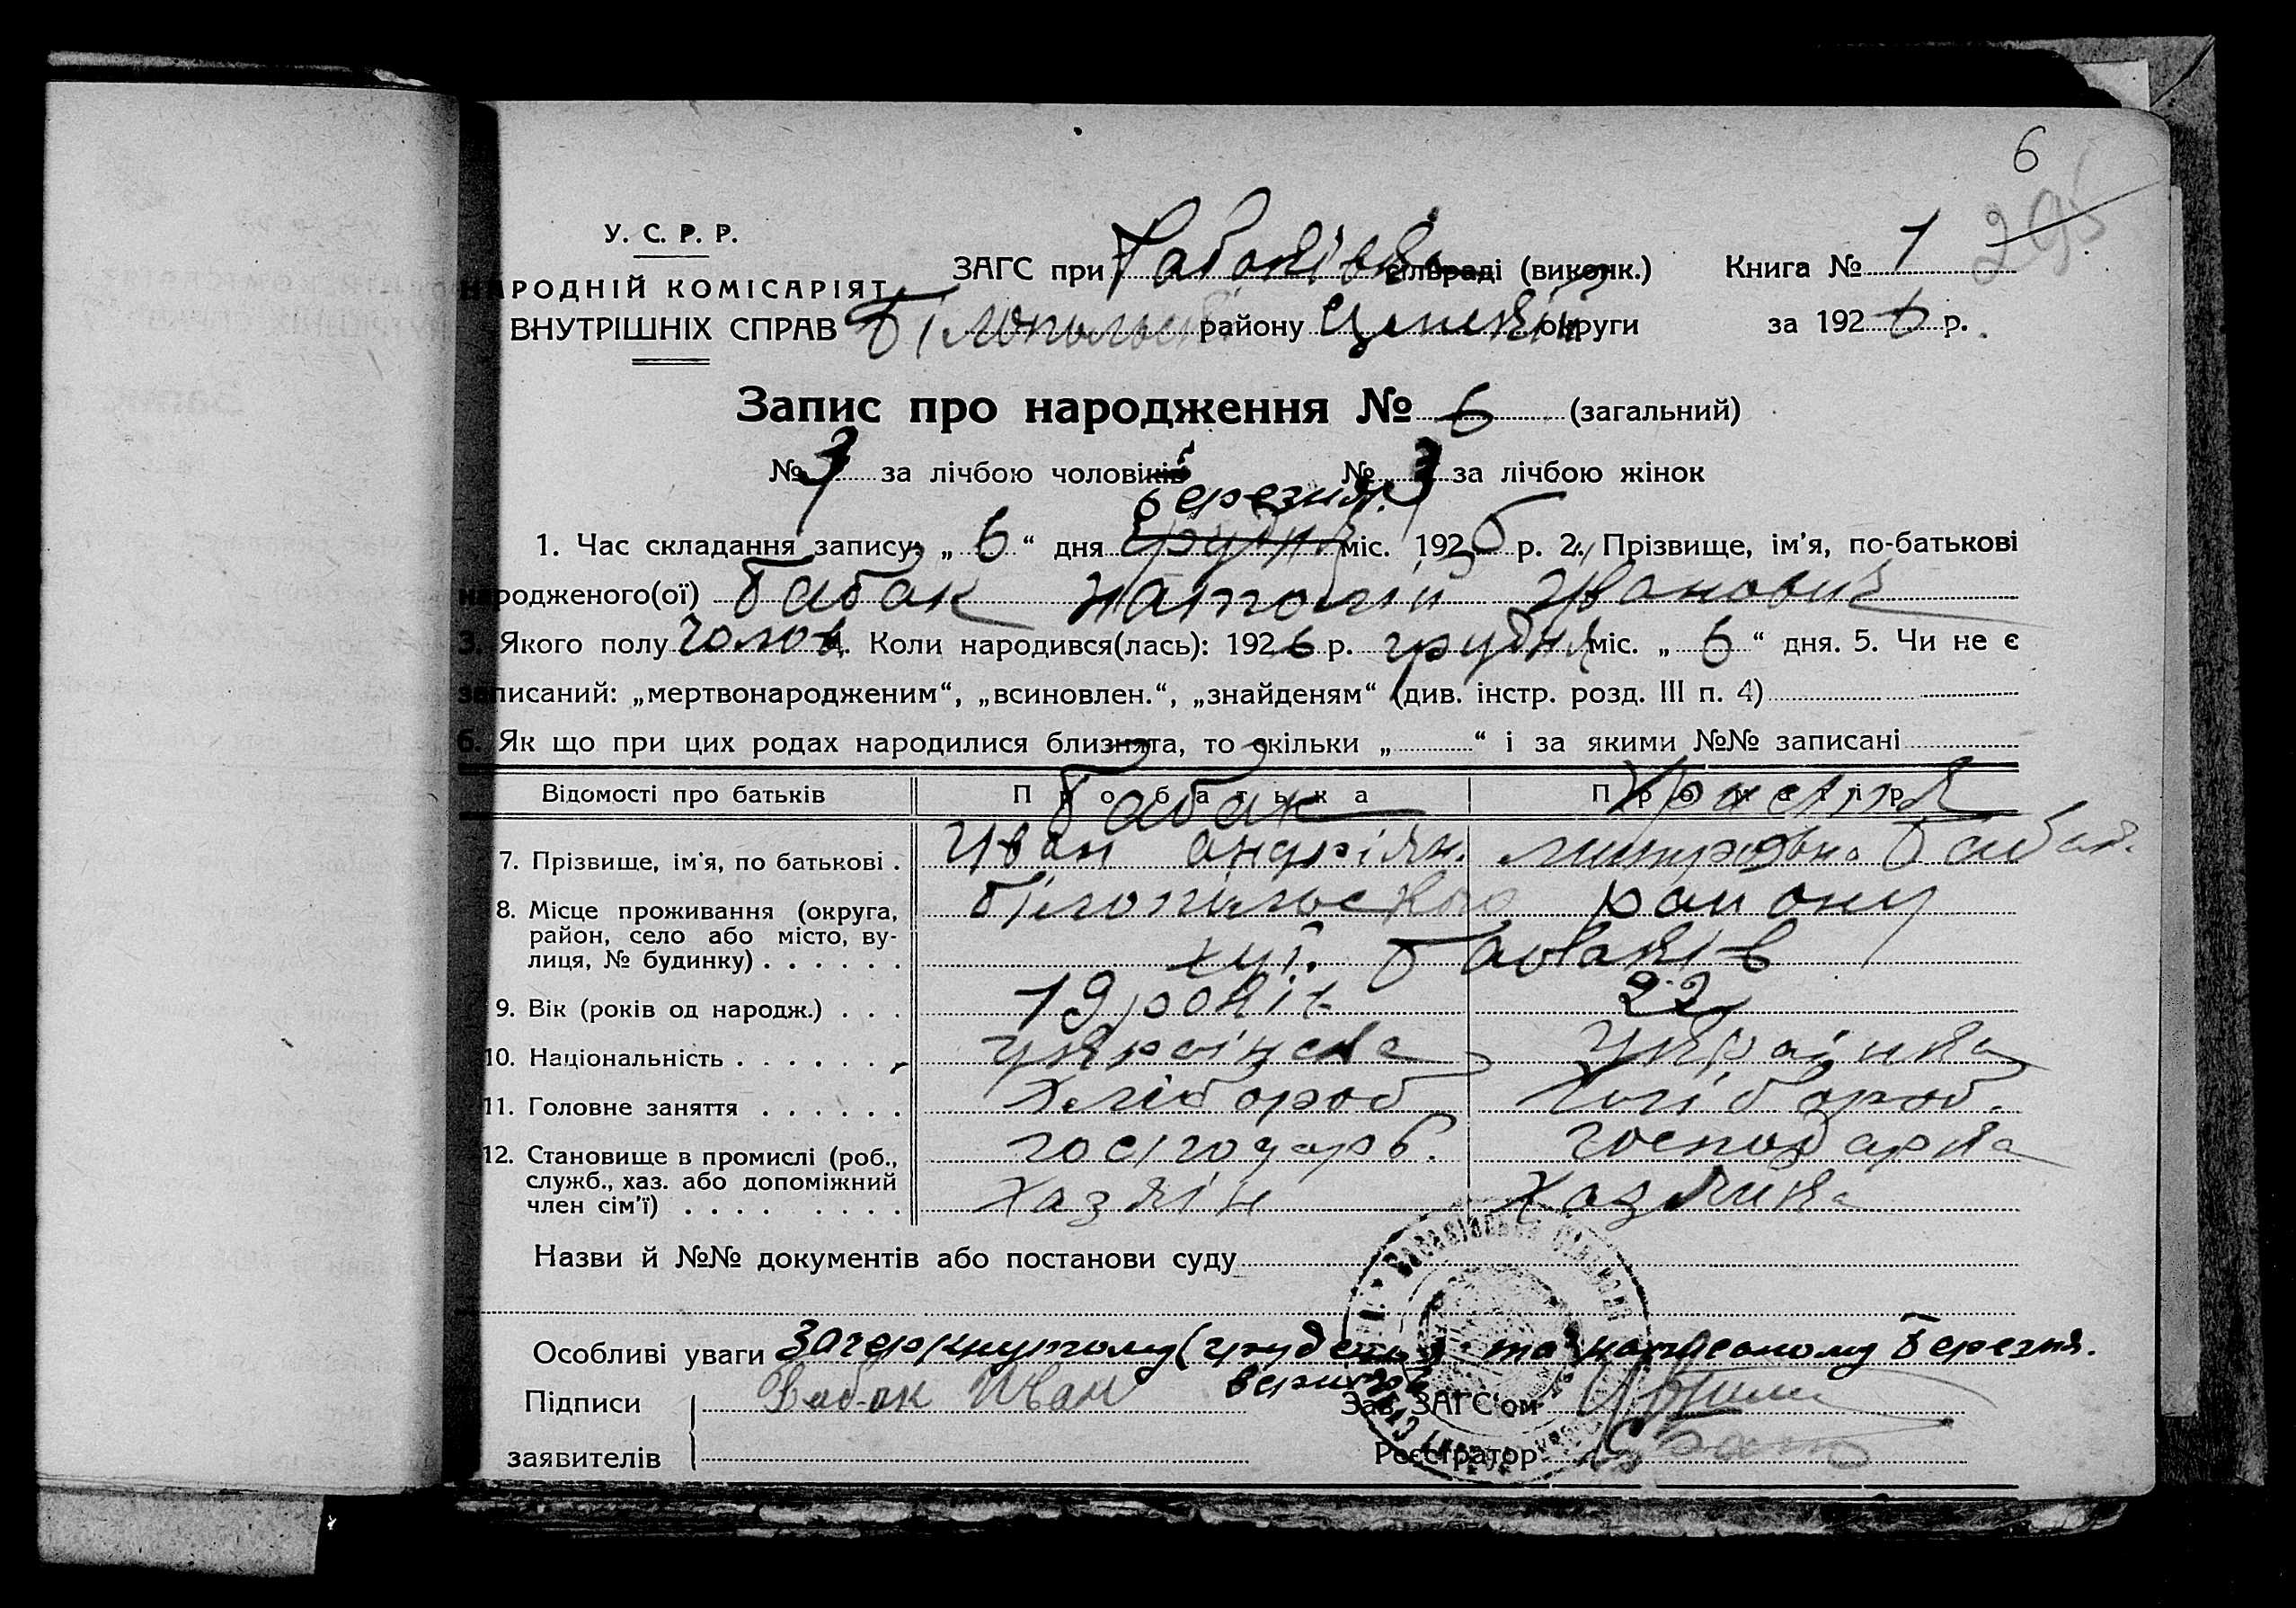 6
295
У. С. Р. Р.
НАРОДНІЙ КОМІСАРІЯТ
ВНУТРІШНІХ СПРАВ
ЗАГС при сільраді (виконк.) Книга № 1
Білопольськ району округи за 1926 р.
Запис про народження № 6 (загальний)
№ 3 за лічбою чоловіків № 3 за лічбою жінок
березня
1. Час складання запису: „ 6 “ дня грудня міс. 1926 р. 2. Прізвище, ім'я, по-батькові
народженого(ої) Бабак Натолій Иванович
3. Якого полу чолов. 4. Коли народився(лась): 1926 р. грудня міс. „ 6 “ дня. 5. Чи не є
записаний: „мертвонародженим“, „всиновлен.“, „знайденям“ (див. інстр. розд. III п. 4)
6. Як що при цих родах народилися близнята, то скільки „ “ і за якими №№ записані
Відомості про батьків Про батька Про матір
7. Прізвище, ім'я, по батькові . Бабак Иван Андріян. Христя Митровна Бабак
8. Місце проживання (округа, Білопільського району
район, село або місто, ву-
лиця, № будинку) . . . . . . хут. Бабаків
9. Вік (років од народж.) . . . 19 років 22
10. Національність . . . . . . . українець українка
11. Головне заняття . . . . . . Хлібороб Хлібороб.
12. Становище в промислі (роб., господарь. господарка
служб., хаз. або допоміжний
член сім'ї) . . . . . . . . хазяїн хазяйка
Назви й №№ документів або постанови суду
Особливі уваги Зачеркнутому (грудень) та написаному березня.
верить
Підписи Бабак Иван Зав. ЗАГС'ом
заявителів Реєстратор